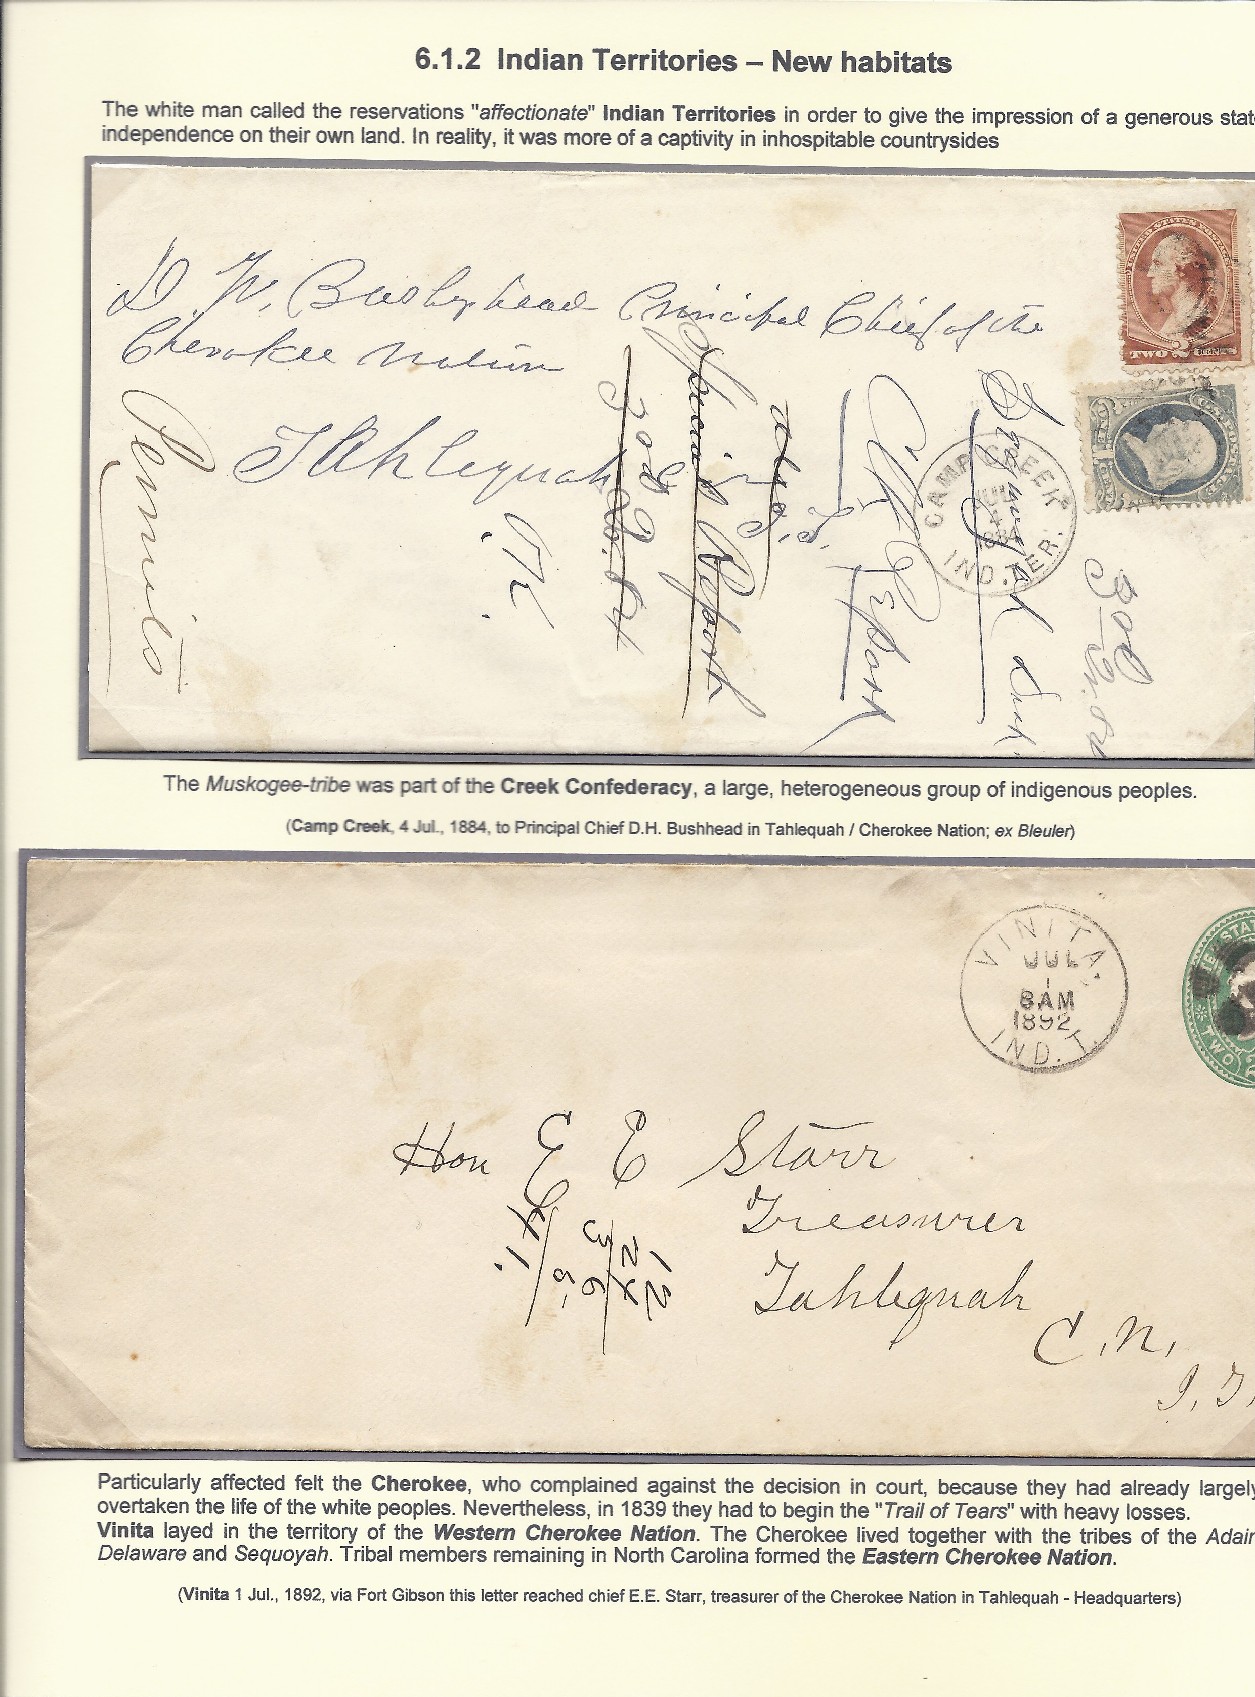 6.1.2 Indian Territories – New habitats
The white man called the reservations "affectionate" Indian Territories in order to give the impression of a generous stat
independence on their own land. In reality, it was more of a captivity in inhospitable countrysides
UNITED STATES POSTAGE
TWO 2 CENTS
D. W. Bushyhead Principal Chief of the
Cherokee Nation
Tahlequah
I.T.
Permits
Special Report
also
Report
CAMP CREEK
JUL
4
1884
IND. TER.
The Muskogee-tribe was part of the Creek Confederacy, a large, heterogeneous group of indigenous peoples.
(Camp Creek, 4 Jul., 1884, to Principal Chief D.H. Bushhead in Tahlequah / Cherokee Nation; ex Bleuler)
VINITA.
JUL
1
8AM
1892
IND. T.
TWO
Hon E E Starr
Treasurer
Tahlequah
C. N.
I. T.
Particularly affected felt the Cherokee, who complained against the decision in court, because they had already largely
overtaken the life of the white peoples. Nevertheless, in 1839 they had to begin the "Trail of Tears" with heavy losses.
Vinita layed in the territory of the Western Cherokee Nation. The Cherokee lived together with the tribes of the Adair
Delaware and Sequoyah. Tribal members remaining in North Carolina formed the Eastern Cherokee Nation.
(Vinita 1 Jul., 1892, via Fort Gibson this letter reached chief E.E. Starr, treasurer of the Cherokee Nation in Tahlequah - Headquarters)